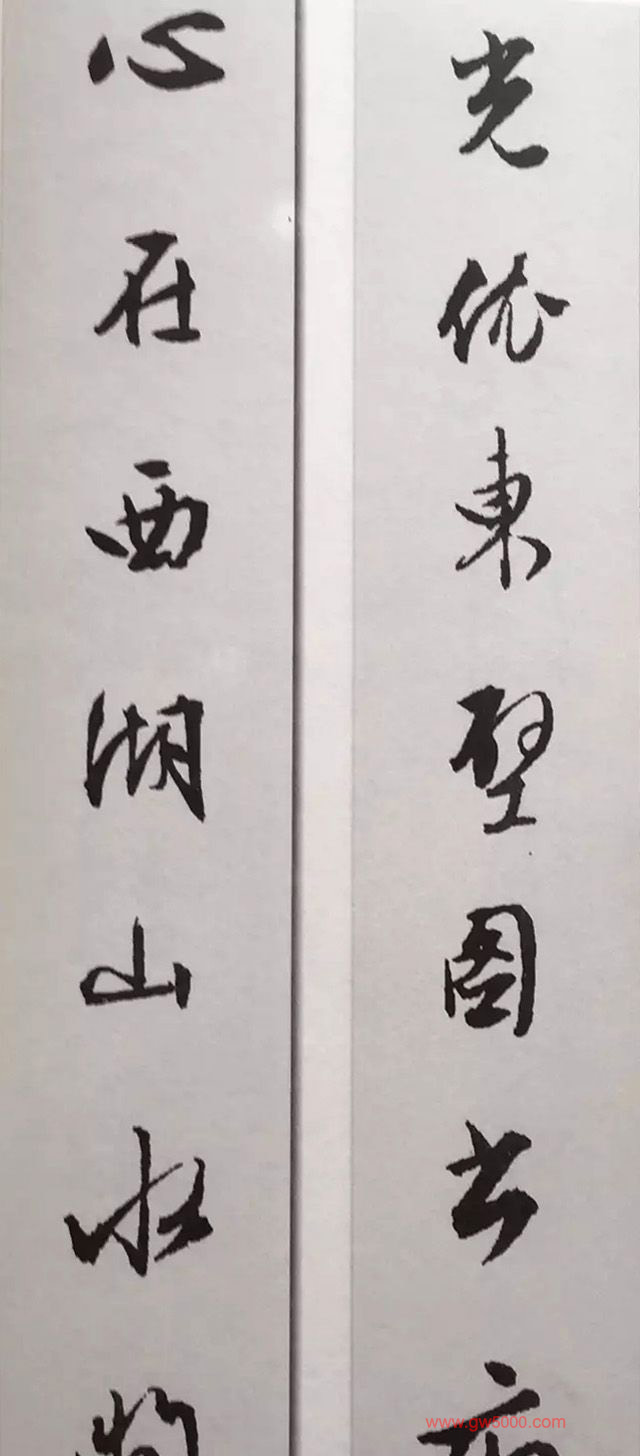 光依東壁圖書
心在西湖山水
www.gw5000.com